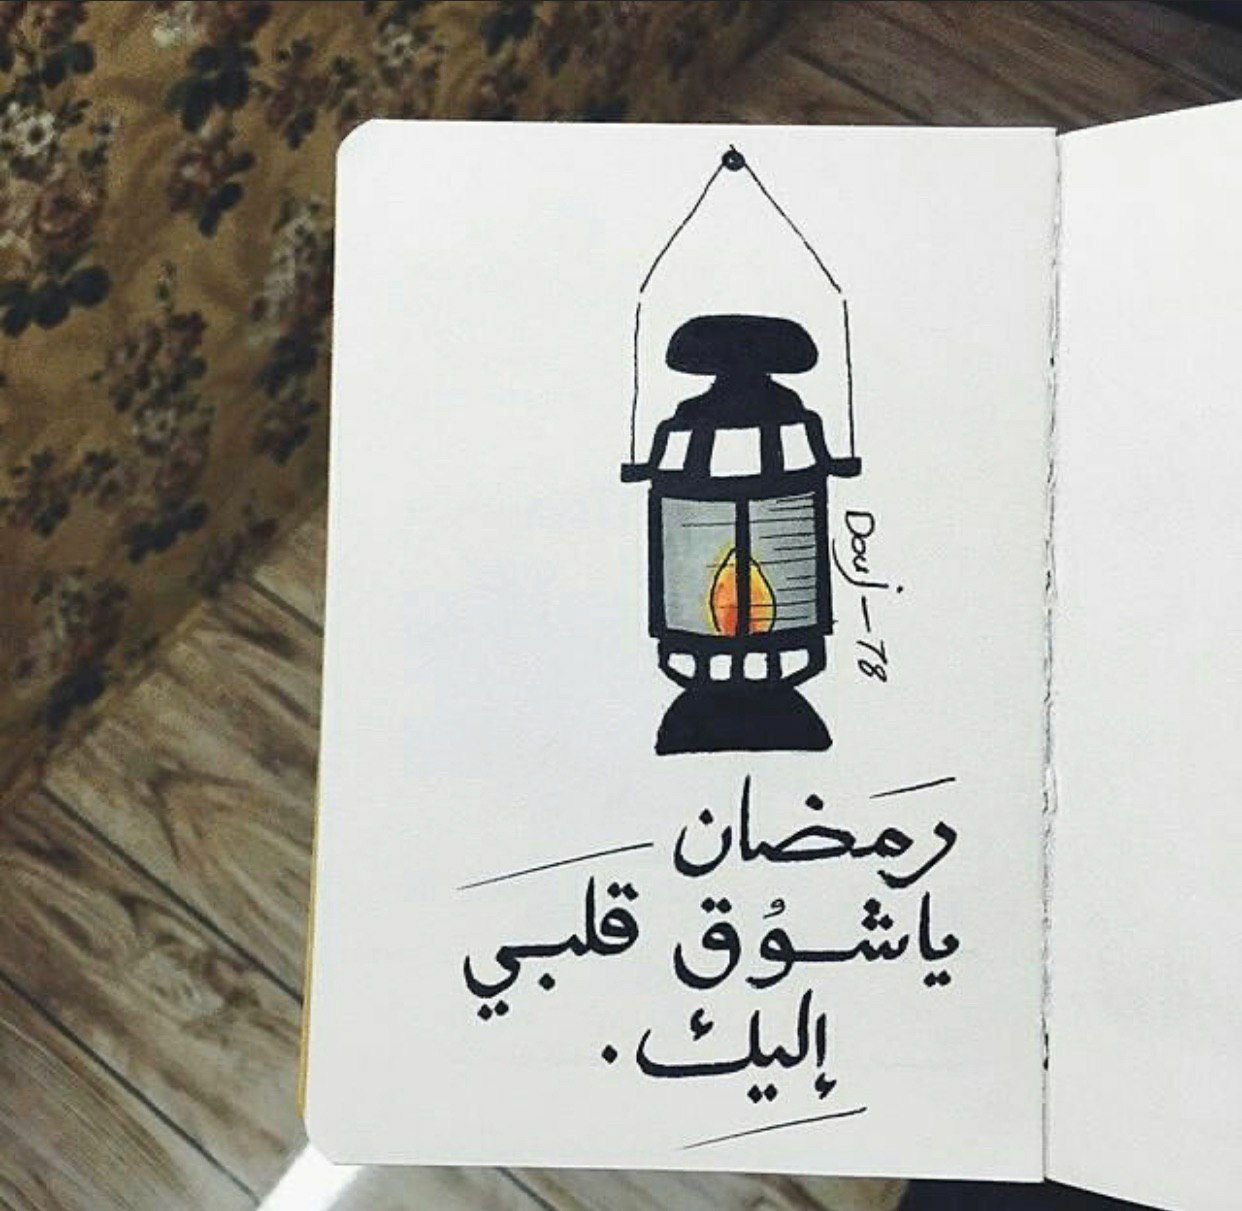 Douj-78
رَمَضان
ياشوُق قلبي
إليك.